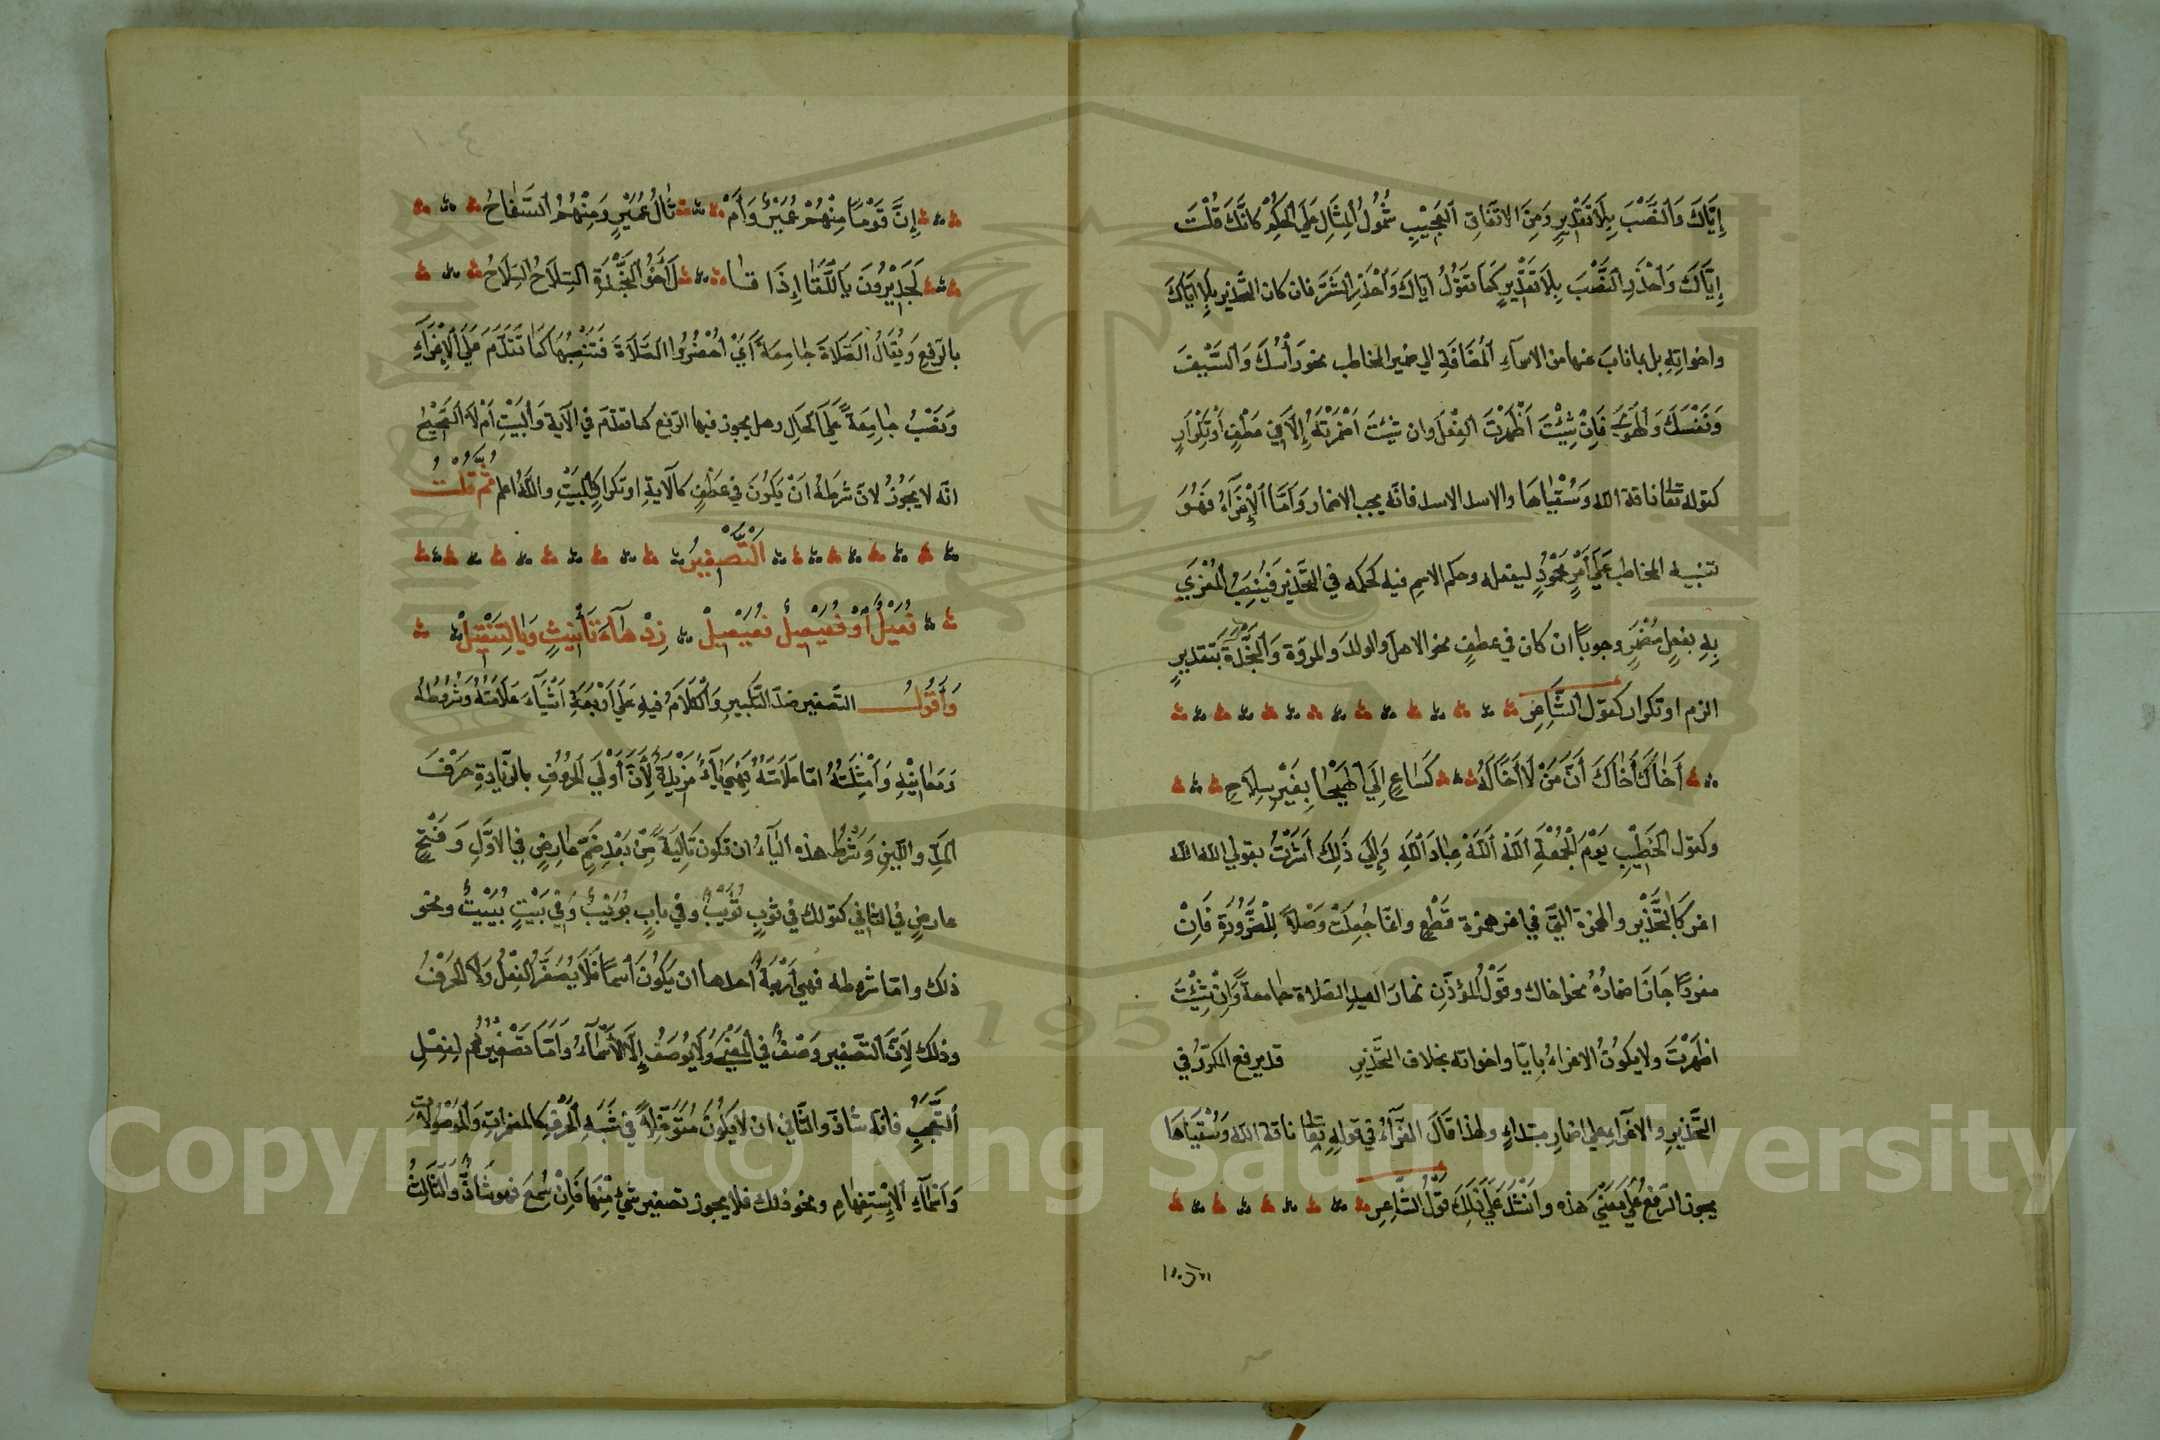 إِيَّاكَ وَالنَّصْبَ بِلَا تَقْدِيرٍ وَمِنَ الاتفَاقِ العَجِيْبِ شُمُولُ المِثَالِ عَلَي الحُكْمِ كَأنَّكَ قُلْتَ
إِيَّاكَ وَاحْذَرِ النَّصْبَ بِلَا تَقْدِيرٍ كَمَا تَقُوْلُ ايَّاكَ وَاحْذَرِ الشَّرَّ فان كان التَّحْذِير بِلَا ايَّاكَ
واخواتِهِ بل بما نابَ عنها من الاسمآءِ المُضَافَةِ الي ضمير المخاطب نحو رَأْسَكَ وَالسَّيْفَ
وَنَفْسَكَ وَالهَوَيَ فَإِنْ شِئْتَ اَظْهَرْتَ الفِعْلَ وان شِئتَ اَضْمَرْتَهُ إِلَّا فِي عَطْفٍ أَوْ تَكْرَارٍ
كقوله تعا ناقة الله وَسُقْيَاهَا والاسد الاسد فانَّه يجب الاضمار وَاَمَّا الإِغْرَآءُ فَهُوَ
تنبيه المخاطب عَلَي اَمْرٍ مَحْمُودٍ ليفعله وحكم الاسمِ فيه كحكمه في التَّحْذِيرِ فَيُنْصَبُ المُغْرَي
بِهِ بفعلٍ مُضْمَرٍ وجوبًا ان كان في عطفٍ نحو الاهلَ والولدَ والمروّة وَالنَّجْدَةَ بتقديرِ
الزم او تكرار كقول الشَّاعِرِ
أَخَاكَ أَخَاكَ أَنَّ مَنْ لَا أَخَا لَهُ كَسَاعٍ إِلَي الهَيْجَا بِغَيْرِ سِلَاحِ
وكقول الخَطِيْبِ يَوْمَ الجُمْعَةِ اللَّهَ اللَّهَ عِبَادَ اللَّهِ وَإِلَي ذَلِكَ اَشَرْتُ بقولي الله الله
اغر كَالتَّحْذِيْر والهمزة الَّتِي في اغر همزة قَطْعٍ وانما جُعِلَتْ وَصْلاً لِلضَّرُوْرَةِ فَإِنْ
مفردًا جَازَ اضمارُهُ نحو اخاك وقَوْلُ المؤذّنِ نهارَ العيدِ الصّلاة جامعةً وَإِنْ شِئْتَ
اظهَرْتَ ولا يكوْنُ الاغراءُ بِايّا واخواته بخلاف التَّحْذِيرِ قد يرفع المكرّرُ في
التَّحْذِيرِ والاغرآءِ علي اضمارِ مبتداءٍ ولهذا قَالَ الفَرّآءُ في قولِهِ تعا ناقةَ الله وَسُقْيَاهَا
يجوز الرَّفعُ عَلَي مَعْنَي هَذِه وانشَدَ عَلَي ذَلِكَ قَوْلُ الشَّاعِرِ
إِنَّ قَوْمًا مِنْهُمْ عُمَيْرٌ وَأَمْ ثَالُ عُمَيْرٍ وَمِنْهُمُ السَّفَاحُ
لَجَدِيْرُونَ بِاللِّقَا إِذَا قَا لَ أَخُو النَّجْدَةِ السِّلَاحُ السِّلَاحُ
بالرّفعِ وَيُقَالُ الصَّلَاةَ جَامِعَةً اَيْ اُحْضُرُوا الصَّلَاةَ فَتَنْصِبُهَا كَمَا تَقَدَّمَ عَلَي الاِغْرَآءِ
وَنَصْبُ جَامِعَةً عَلَي الحَالِ وهل يجوز فيها الرّفع كما تقدّم في الآية وَالبَيْتِ اَمْ لَا الصَّحِيْحُ
انّه لا يَجُوْزُ لانّ شَرطَهُ اَنْ يَكُونَ في عَطْفٍ كالآيةِ او تكرارٍ كالبَيْتِ والله اعلم ثُمَّ قلتُ
اَلْتَّصْغِيْرُ
فُعَيْلٌ أَوْ فُعَيْعِلٌ فُعَيْعِيْلْ زِدْ هَاءَ تَأْنِيْثٍ وَيَا لِتَثْقِيْلْ
وَأَقُوْلُ التَّصغير ضدّ التَّكْبيرِ وَالْكَلَامُ فيهِ عَلَي اَرْبَعَةِ اَشْيَآءَ عَلَامَتُهُ وَشُرُوْطُهُ
وَمَعَانِيْهِ وَاَمْثِلَتُهُ امّا عَلَامَتُهُ فَهِيَ يَآءٌ مَزِيْدَةٌ لِأَنَّ أَوْلَي الحُرُوفِ بالزّيَادةِ حَرْفَ
المدِّ واللّينِ وَشَرْطُ هذه اليَآءِ ان تكون تَالِيَةً مِنْ بَعْدِ ضَمٍّ عَارِضٍ في الاَوَّلِ وَفَتْحٍ
عارضٍ في الثاني كقولك في ثوبٍ ثُوَيْبٌ وفي بَابٍ بُوَيْبٌ وَفِي بَيْتٍ بُيَيْتٌ ونحو
ذلك وامّا شروطه فهي اَرْبَعَةٌ احدها ان يَكُونَ اَسْمًا فَلَا يُصَغَّرُ الفِعْلُ وَلَا الحَرْفُ
وذلك لِاَنَّ التّصغير وَصْفٌ في المَعْنَي وَلَا يُوصَفُ إِلَّا الأَسْمَآءُ وَاَمَّا تَصْغِيْرُهُم لِفِعْلِ
التَّعَجُّبِ فانّه شاذّ والثَّانِي ان لا يَكُوْنَ مُتَوَغِّلًا في شَبَهِ الحَرْفِ كالمضمراتِ وَالمَوْصُولَاتِ
وَاَسْمَآءِ الاِسْتِفْهَامِ ونحو ذلك فلا يجوز تصغير شيءٍ مِنْهَا فَاِنْ سُمِعَ فهو شَاذٌّ وَالثَّالِثُ